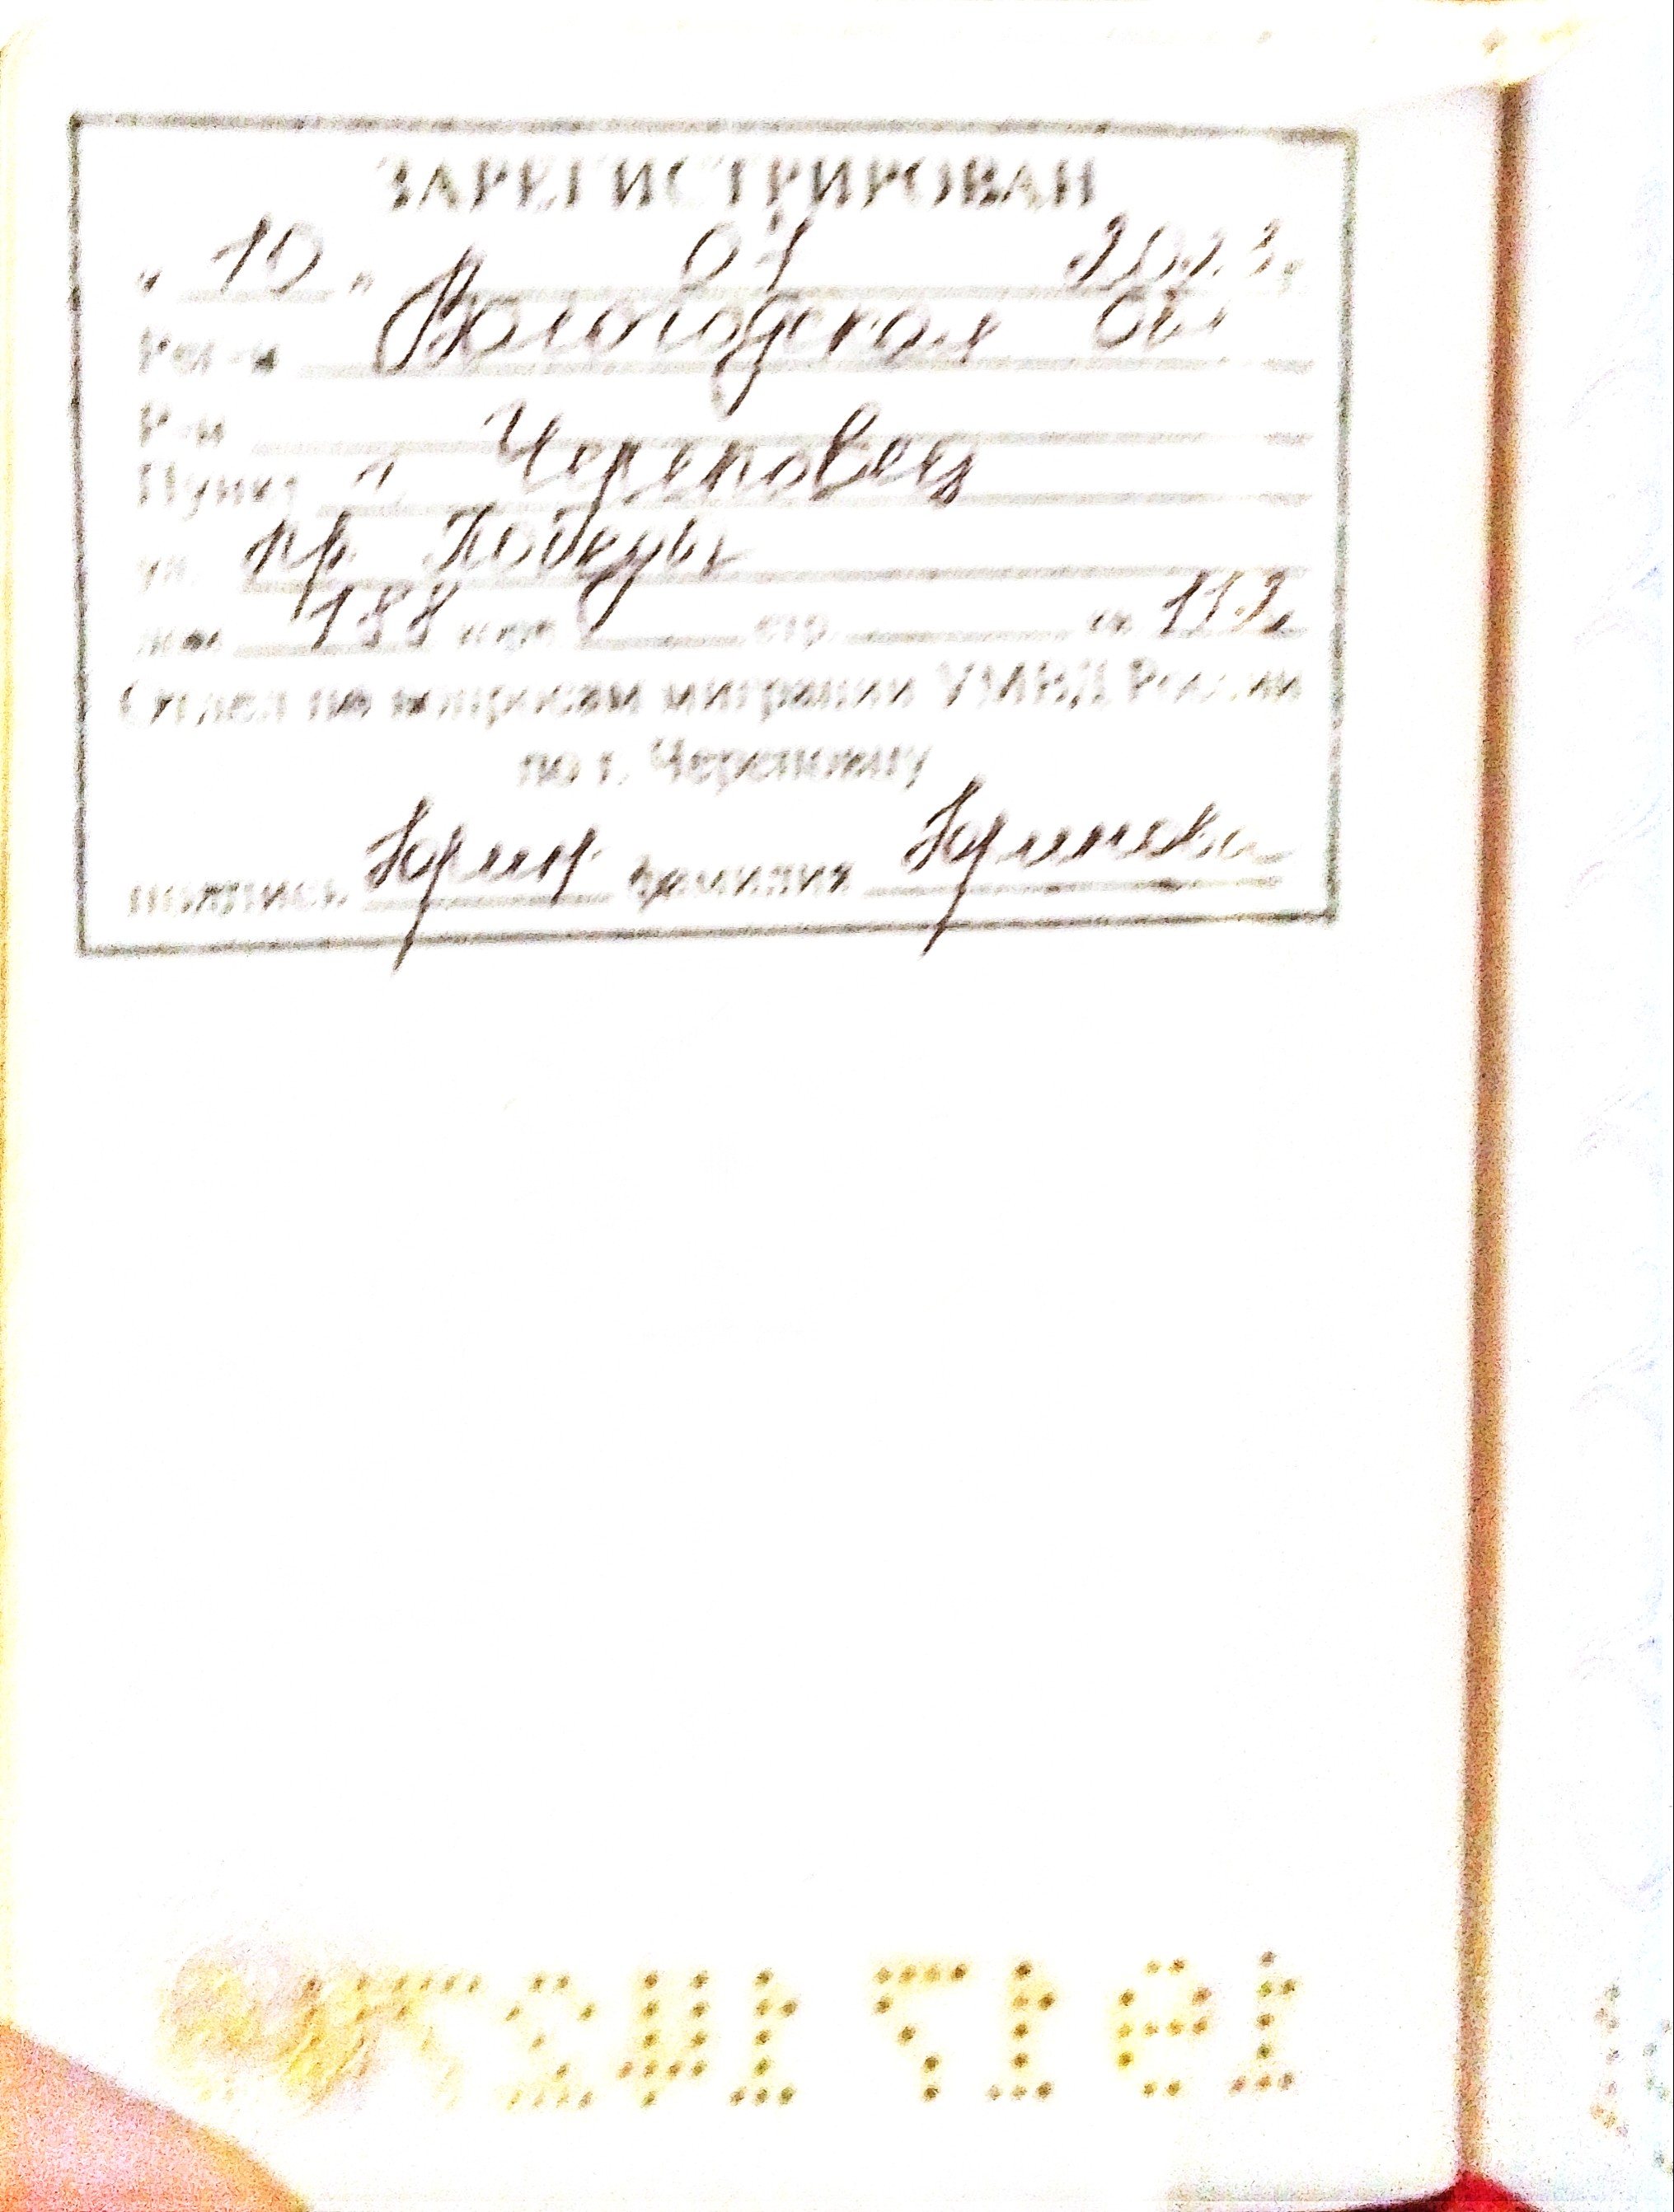 ЗАРЕГИСТРИРОВАН
" 10 " 07 2023 г.
Рег-н Вологодская обл
Р-н
Пункт г Череповец
ул. пр. Победы
дом 188 корп стр. кв 112
Отдел по вопросам миграции УМВД России
по г. Череповцу
подпись фамилия